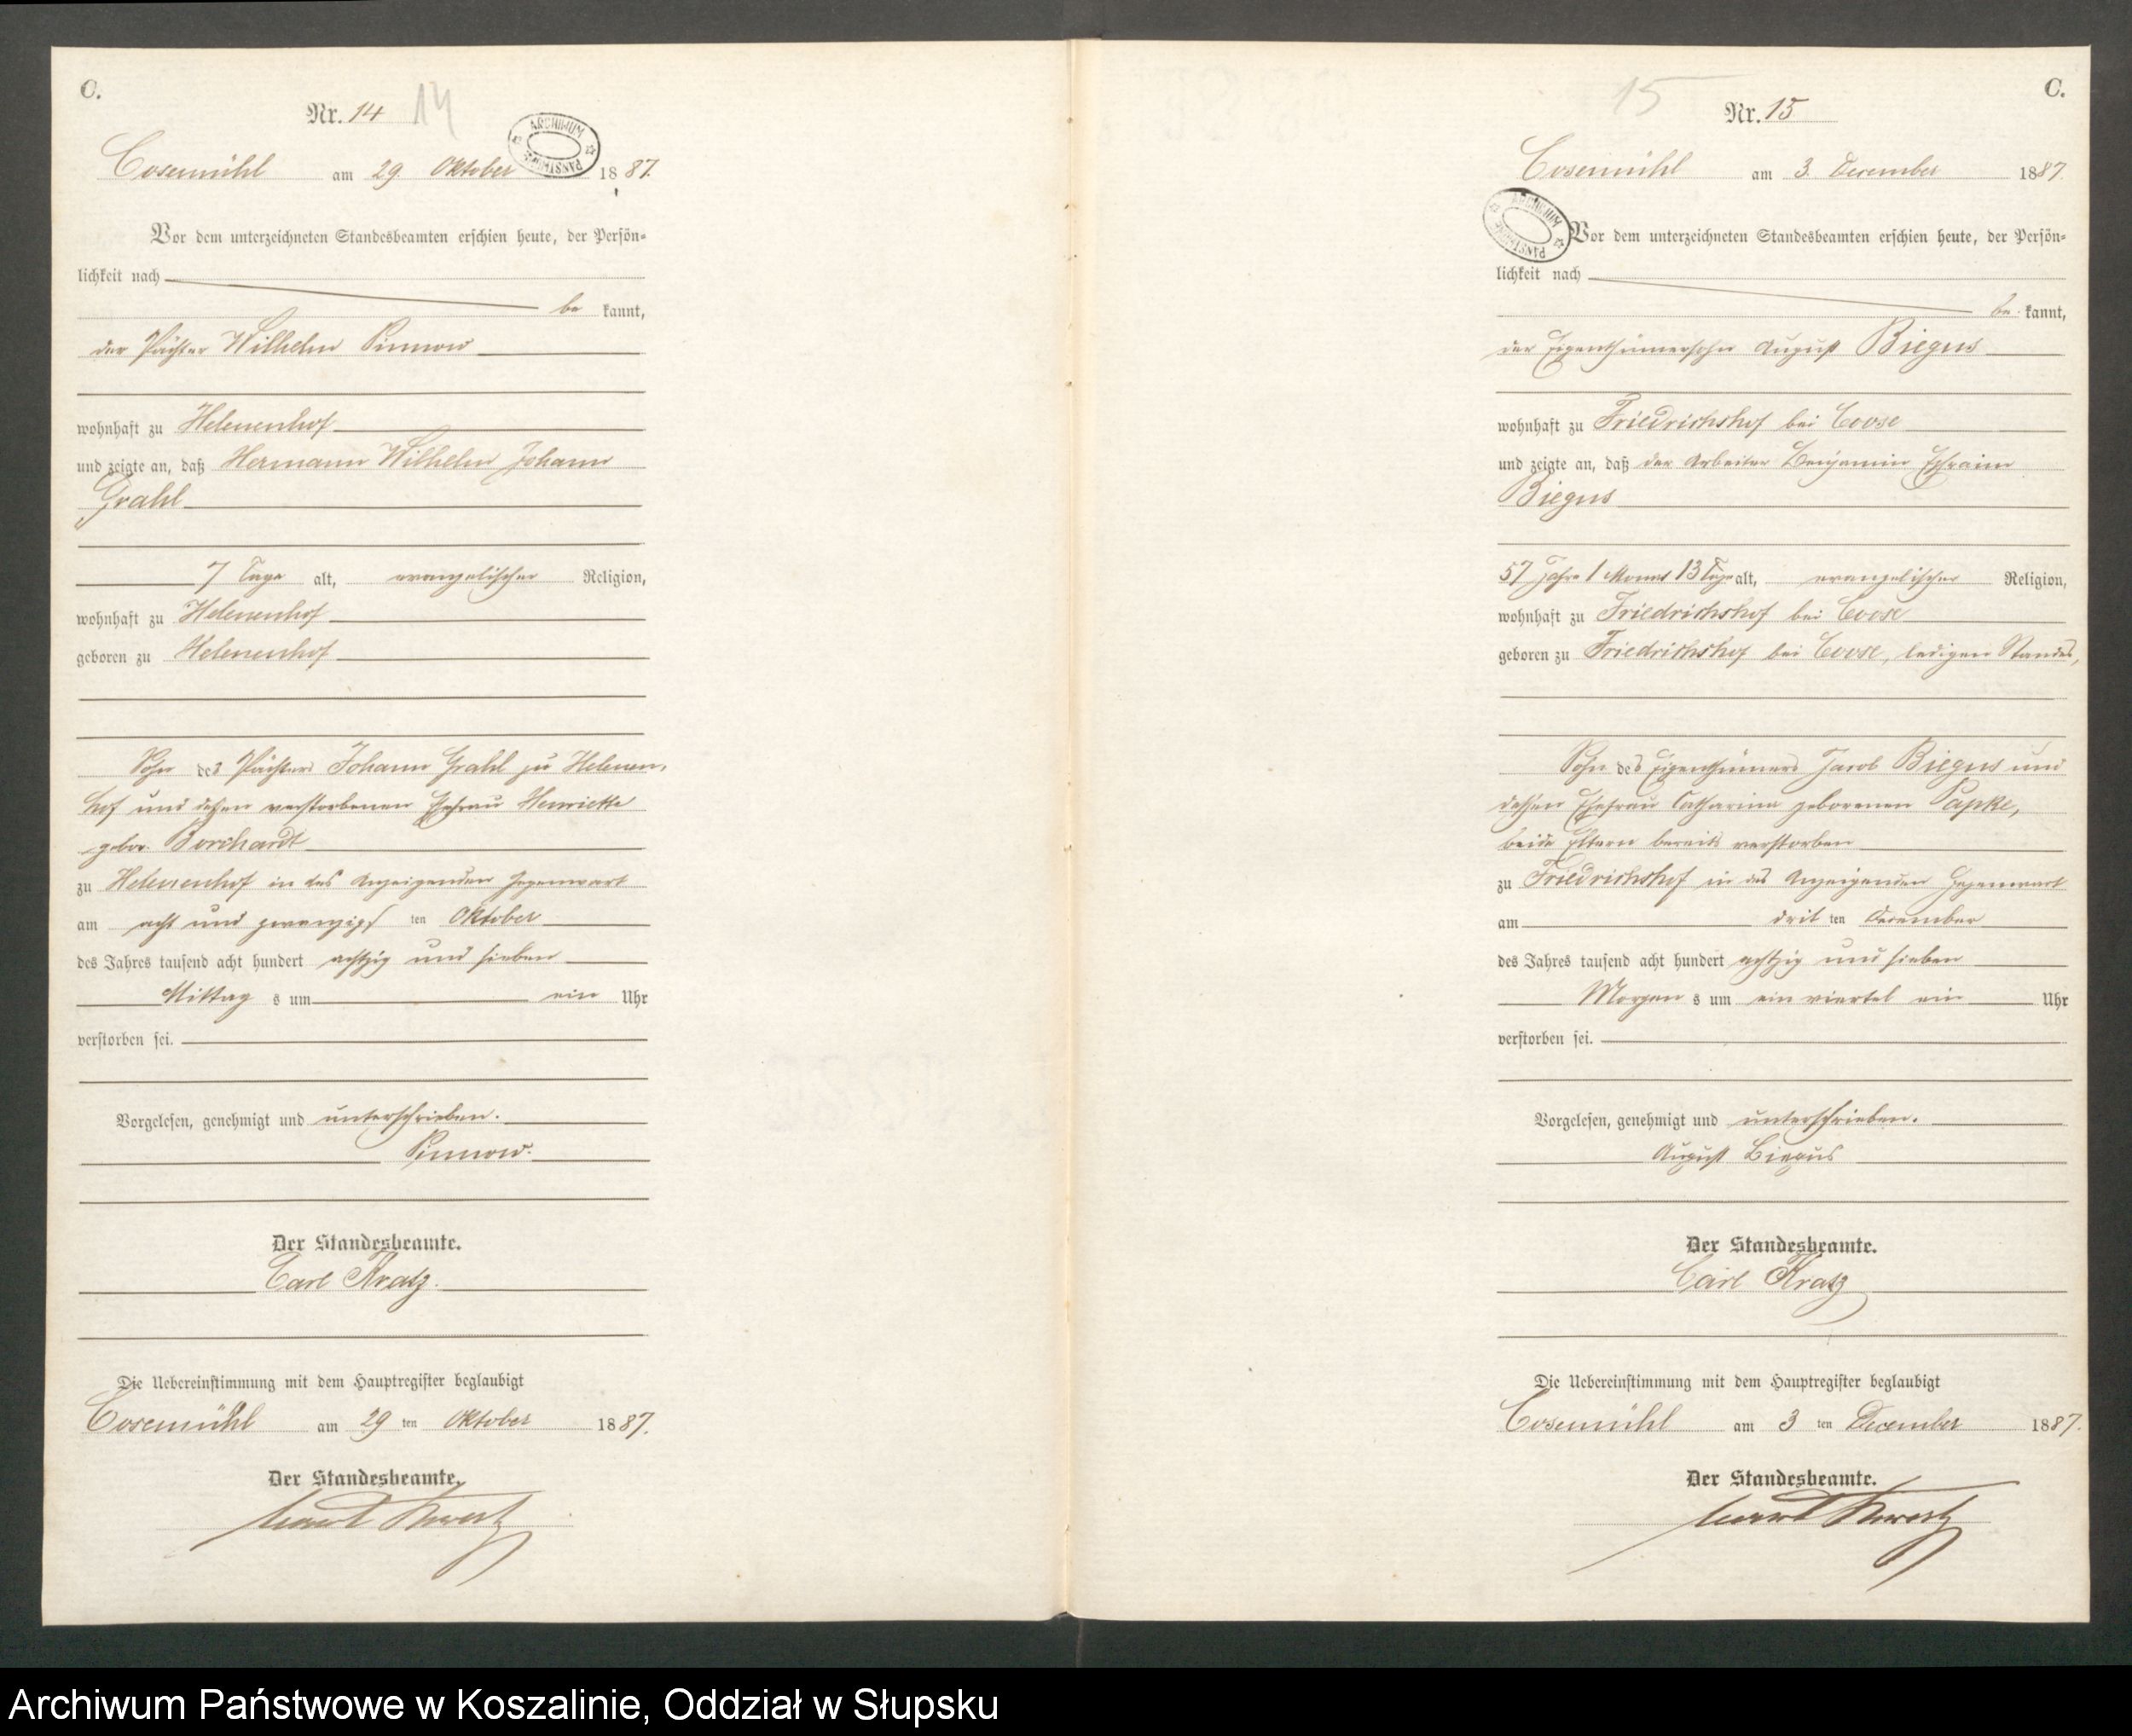 C.
Nr. 14 14
ARCHIWUM PAŃSTWOWE
Cosemühl am 29. Oktober 1887.
Vor dem unterzeichneten Standesbeamten erschien heute, der Persön-
lichkeit nach
be kannt,
der Pächter Wilhelm Pinnow
wohnhaft zu Helenenhof
und zeigte an, daß Hermann Wilhelm Johann
Grahl
7 Tage alt, evangelischer Religion,
wohnhaft zu Helenenhof
geboren zu Helenenhof
Sohn des Pächters Johann Grahl zu Helenen-
hof und deßen verstorbenen Ehefrau Henriette
gebor. Borchardt
zu Helenenhof in des Anzeigenden Gegenwart
am acht und zwanzigs ten Oktober
des Jahres tausend acht hundert achtzig und sieben
Mittag s um ein Uhr
verstorben sei.
Vorgelesen, genehmigt und unterschrieben.
Pinnow.
Der Standesbeamte.
Carl Kratz.
Die Uebereinstimmung mit dem Hauptregister beglaubigt
Cosemühl am 29 ten Oktober 1887.
Der Standesbeamte.
Carl Kratz
C.
15
Nr. 15
Cosemühl am 3. December 1887.
ARCHIWUM PAŃSTWOWE
Vor dem unterzeichneten Standesbeamten erschien heute, der Persön-
lichkeit nach
be kannt,
der Eigenthümersohn August Biegus
wohnhaft zu Friedrichshof bei Coose
und zeigte an, daß der Arbeiter Benjamin Ephraim
Biegus
57 Jahre 1 Monat 13 Tage alt, evangelischer Religion,
wohnhaft zu Friedrichshof bei Coose
geboren zu Friedrichshof bei Coose, ledigen Standes,
Sohn des Eigenthümers Jacob Biegus und
dessen Ehefrau Catharina geborenen Papke,
beide Eltern bereits verstorben
zu Friedrichshof in des Anzeigenden Gegenwart
am drit ten December
des Jahres tausend acht hundert achtzig und sieben
Morgen s um ein viertel ein Uhr
verstorben sei.
Vorgelesen, genehmigt und unterschrieben.
August Biegus
Der Standesbeamte.
Carl Kratz
Die Uebereinstimmung mit dem Hauptregister beglaubigt
Cosemühl am 3 ten December 1887.
Der Standesbeamte.
Carl Kratz
Archiwum Państwowe w Koszalinie, Oddział w Słupsku